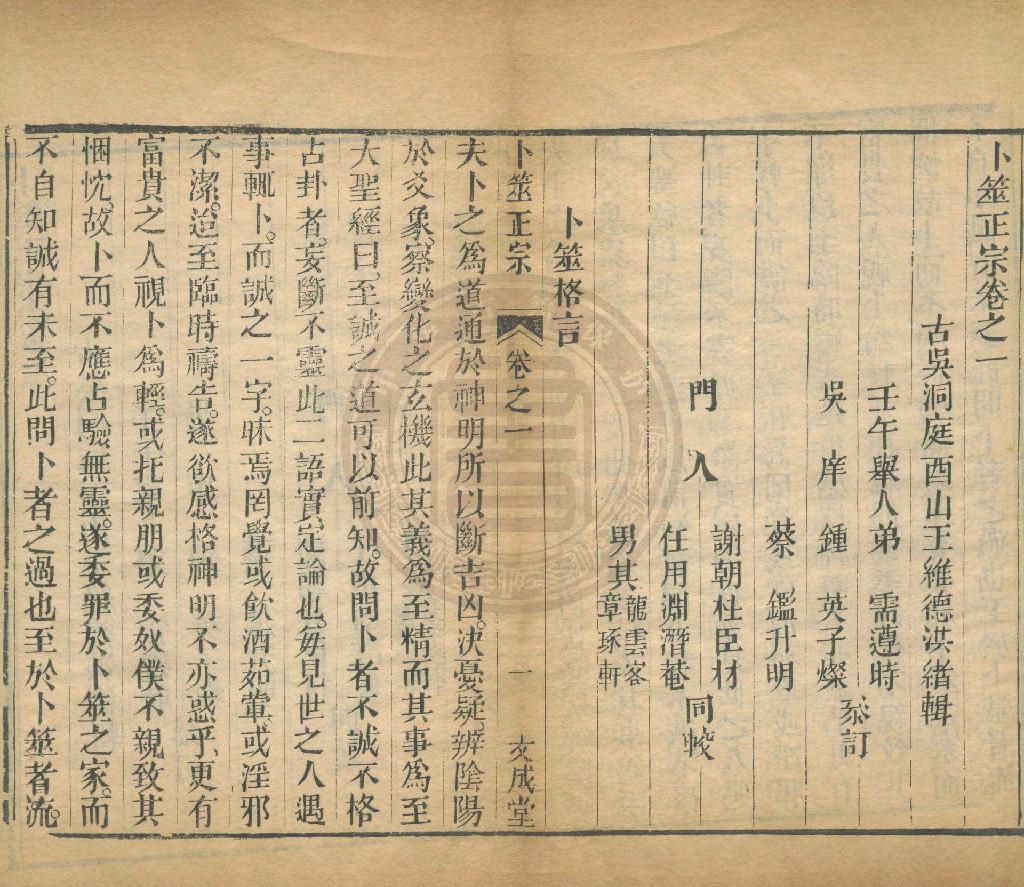 卜筮正宗卷之一
古吳洞庭西山王維德洪緒輯
壬午舉人弟 需遵時
吳庠 鍾英子燦
叅訂
蔡鑑升明
門人
謝朝柱臣材
任用淵潛菴
同較
男其
龍雲客
章琢軒
卜筮格言
卜筮正宗 卷之一 一 文成堂
夫卜之爲道通於神明所以斷吉凶。決憂疑。辨陰陽
於爻象。察變化之玄機此其義爲至精而其事爲至
大聖經曰。至誠之道可以前知。故問卜者不誠不格
占卦者。妄斷不靈此二語實定論也。每見世之人遇
事輒卜。而誠之一字。昧焉罔覺或飲酒茹葷。或淫邪
不潔。迨至臨時禱告。遂欲感格神明不亦惑乎。更有
富貴之人視卜爲輕。或托親朋或委奴僕不親致其
悃忱。故卜而不應占驗無靈。遂委罪於卜筮之家。而
不自知誠有未至。此問卜者之過也至於卜筮者流。